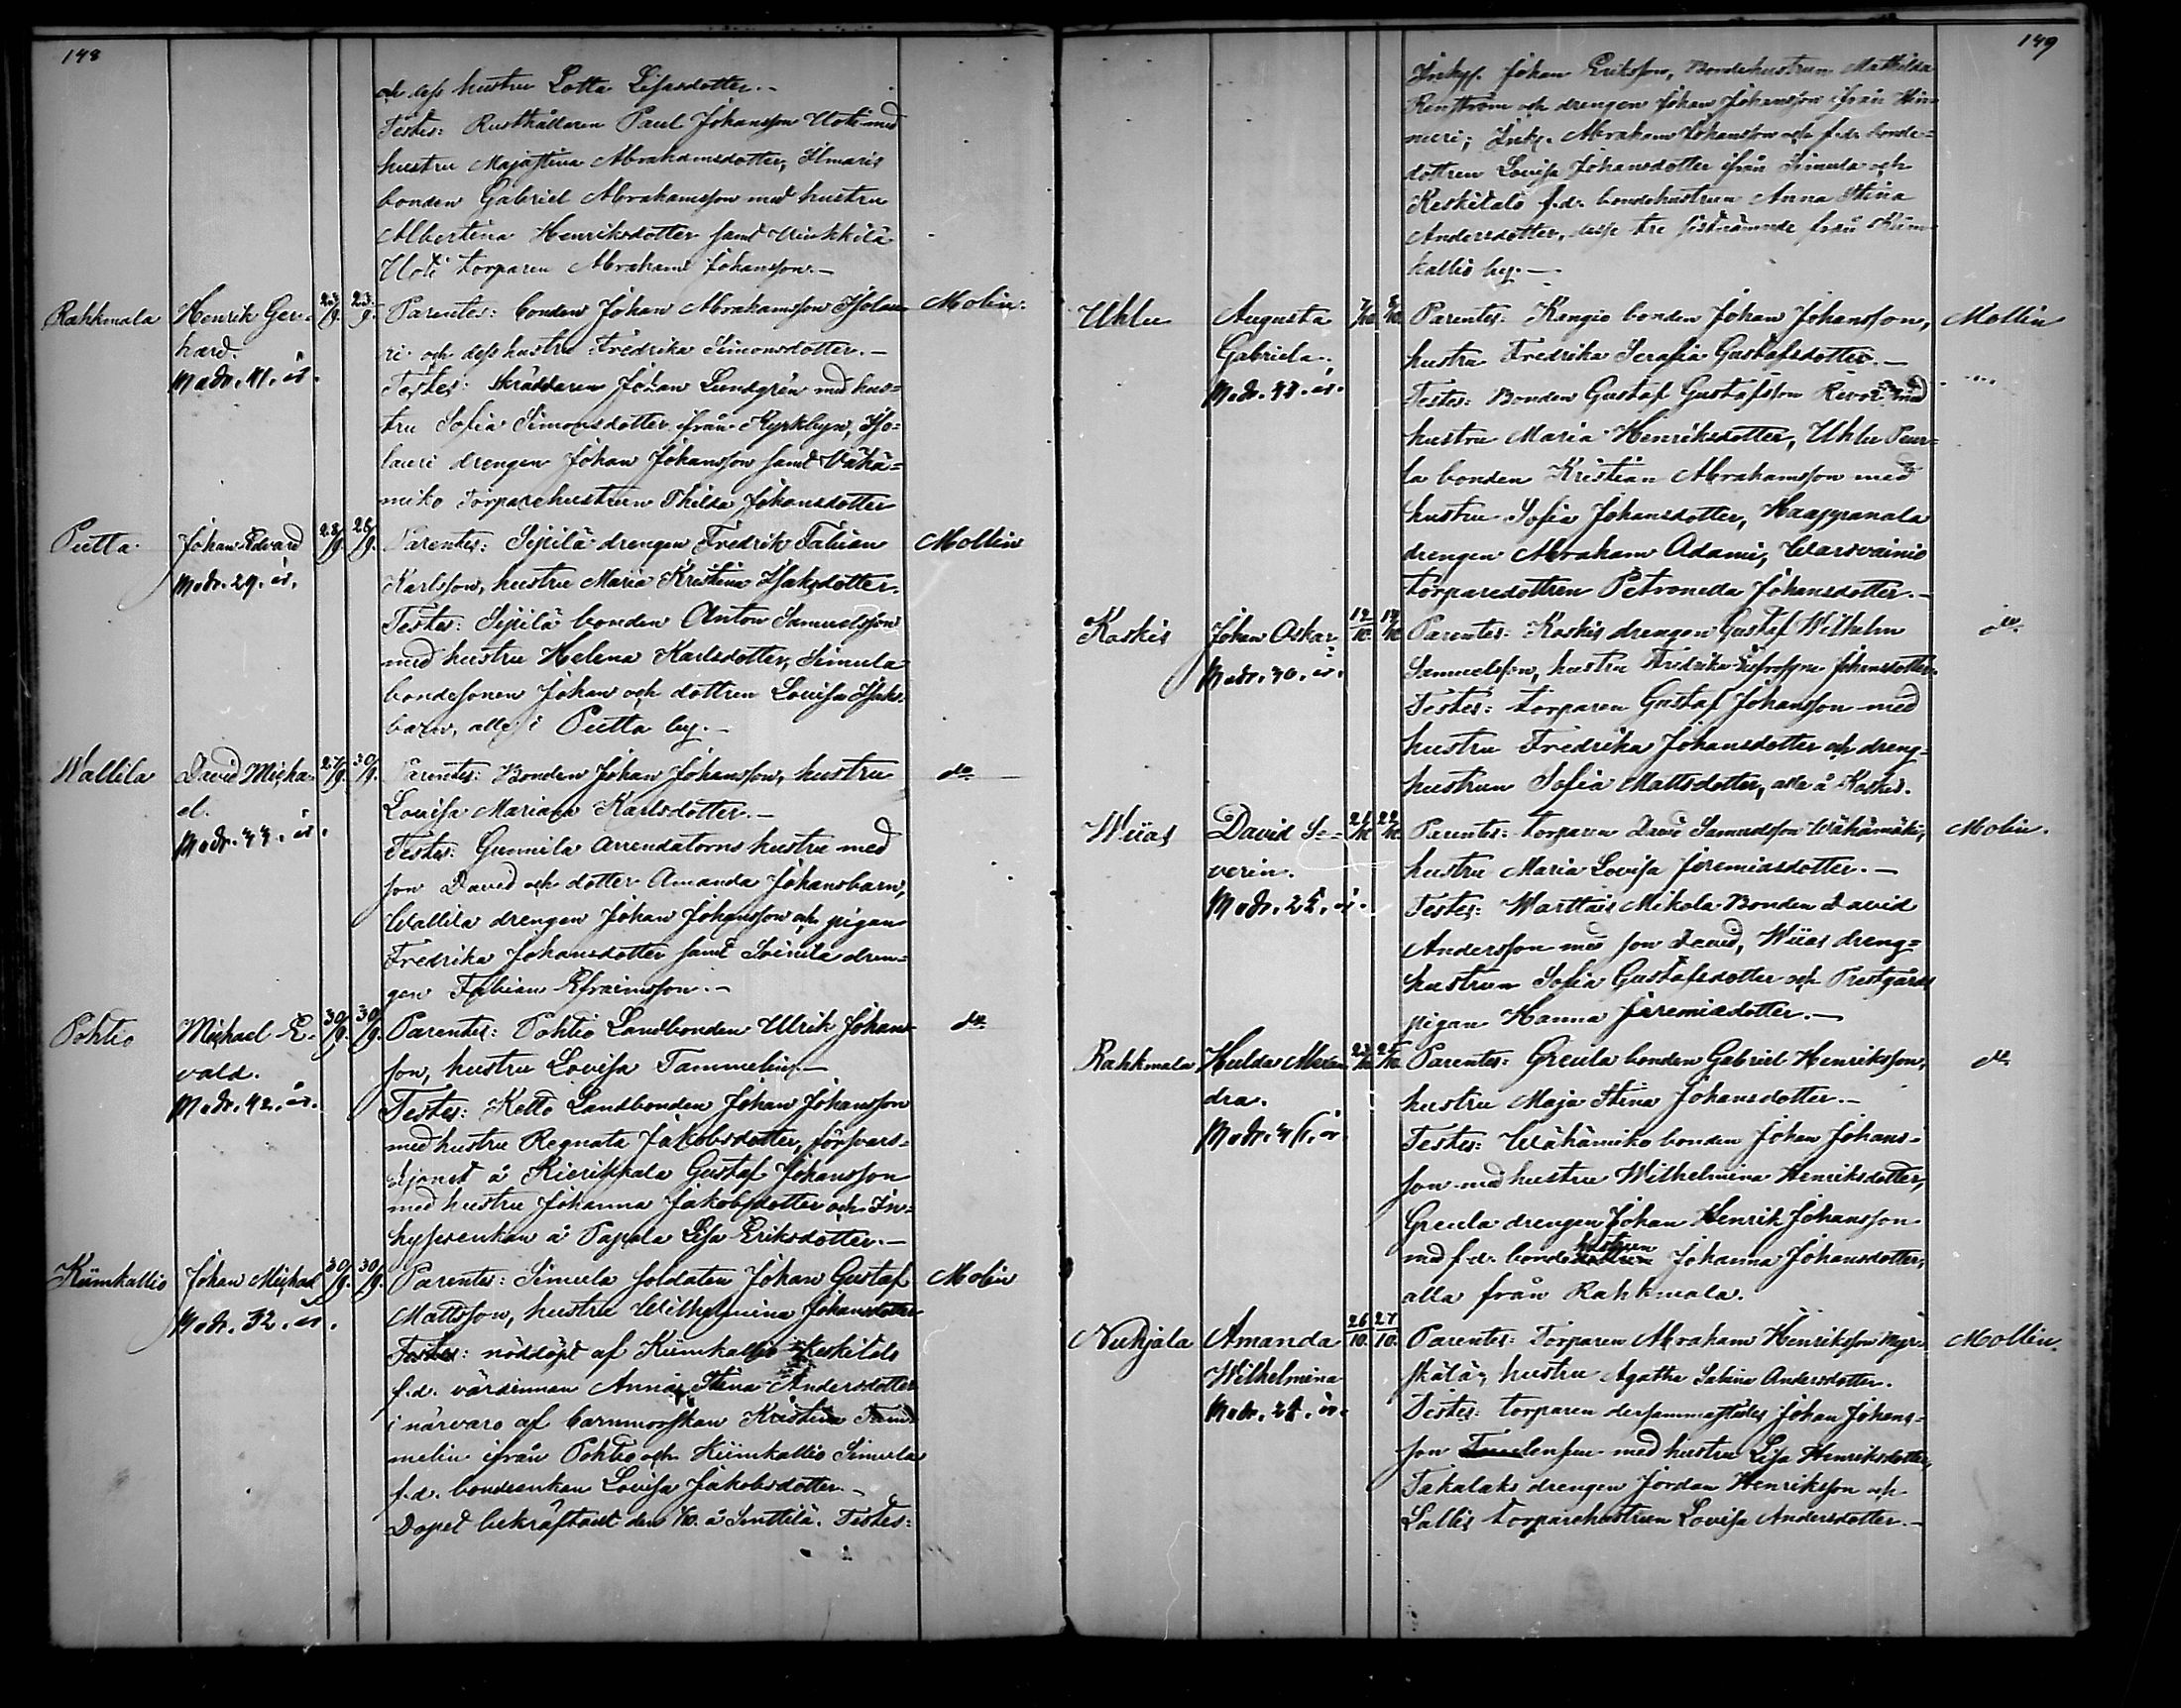 148
och dess hustru Lotta Lisasdotter.-
Testes: Rusthållaren Paul Johansson Uoti med
hustru Majastina Abrahamsdotter, Ilmaris
bonden Gabriel Abrahamsson med hustru
Albertina Henriksdotter samt
Uoti torparen Abraham Johansson.-
Rahkmala Henrik Ger= 23/9. 23/9. Parentes: bonden Johan Abrahamsson Isolau= Molin.
hard. ri och dess hustru Fredrika Simonsdotter.-
Modr. 41. år. Testes: Skräddaren Johan Lundgrén med hus=
tru Sofia Simonsdotter ifrån Kyrkbyn, Iso=
lauri drengen Johan Johansson samt Vähä=
miko Torparehustrun Thilda Johansdotter
Putta Johan Edvard 28/9. 28/9. Parentes: Sipilä drengen Fredrik Fabian Mollin
Modr. 29. år. Karlsson, hustru Maria Kristina Isaksdotter.
Testes: Sipilä bonden Anton Samuelsson
med hustru Helena Karlsdotter, Simula
bondesonen Johan och dottren Lovisa Isaks=
barn, alle i Putta by.-
Wallila David Micha= 27/9. 30/9. Parentes: Bonden Johan Johansson, hustru do
el. Lovisa Mariana Karlsdotter.-
Modr. 44. år. Testes: Gunnila Arrendatorns hustru med
son David och dotter Amanda Johansbarn,
Wallila drengen Johan Johansson och pigan
Fredrika Johansdotter samt Soinila dren=
gen Fabian Efraimsson.-
Pohtio Michael E= 30/9. 30/9. Parentes: Pohtio Landbonden Ulrik Johans= do
vald. son, hustru Lovisa Tammelin.-
Modr. 42. år. Testes: Ketto Landbonden Johan Johansson
med hustru Regnata Jakobsdotter, försvars=
tjenst å Kierikkala Gustaf Johansson
med hustru Johanna Jakobsdotter och In=
hysesenkan å Papola Lisa Eriksdotter.-
Kiimkallio Johan Michael 30/9. 30/9. Parentes: Simula soldaten Johan Gustaf Molin
Modr. 32. år. Mattsson, hustru Wilhelmina Johansdotter
Testes: nöddöpt af Kiimkallio Keskitalo
f.d. värdinnan Anna Stina Andersdotter
i närvaro af barnmorskan Kristina Tam=
melin ifrån Pohtio och Kiimkallio Simula
f.d. bondeenkan Lovisa Jakobsdotter.-
Dopet bekräftadt den 1/10. å Sinttilä. Testes:
149
Inhys. Johan Eriksson, Bondehustrun Mathilda
Renström och drengen Johan Johansson ifrån Hin=
neri; Inhys. Abraham Johansson och f.d. bonde=
dottren Lovisa Johansdotter ifrån Simula och
Keskitalo f.d. bondehustrun Anna Stina
Andersdotter, desse tre sistnämnde från Kiim=
kallio by.-
Uhlu Augusta 7/10. 8/10. Parentes: Kengio bonden Johan Johansson, Mollin
Gabriela. hustru Fredrika Serafia Gustafsdotter.-
Modr. 42. år. Testes: Bonden Gustaf Gustafsson med
hustru Maria Henriksdotter, Uhlu Peur=
la bonden Kristian Abrahamsson med
hustru Sofia Johansdotter, Haappanala
drengen Abraham Adami, Warsvainio
torparedottren Petronella Johansdotter.-
Koskis Johan Oskar 12/10. 14/10. Parentes: Koskis drengen Gustaf Wilhelm do
Modr. 40. år. Samuelsson, hustru Fredrika Eufrosyne Johansdotter.
Testes: torparen Gustaf Johansson med
hustru Fredrika Johansdotter och dreng=
hustrun Sofia Mattsdotter, alla å Koskis.
Wiias David Se= 21/10. 22/10. Parentes: torparen David Samuelsson Wähämäki, Molin.
verin. hustru Maria Lovisa Jeremiasdotter.-
Modr. 25. år. Testes: Warttais Mikola Bonden David
Andersson med son David, Wiias dreng=
hustrun Sofia Gustafsdotter och Prestgårds
pigan Hanna Jeremiasdotter.-
Rahkmala Hulda Alexan= 23/10. 25/10. Parentes: Greula bonden Gabriel Henriksson, do
dra. hustru Maja Stina Johansdotter.-
Modr. år. Testes: Wähämiko bonden Johan Johans=
son med hustru Wilhelmina Henriksdotter,
Greula drengen Johan Henrik Johansson
med f.d. bondehustrun Johanna Johansdotter,
alla från Rahkmala.
Nuhjala Amanda 26/10. 27/10. Parentes: Torparen Abraham Henriksson Myr= Mollin.
Wilhelmina skälä, hustru Agatha Sabina Andersdotter.
Modr. 28. år. Testes: torparen dersammastädes Johan Johans=
son med hustru Lisa Henriksdotter,
Takalaks drengen Jordan Henriksson och
Lallis torparehustrun Lovisa Andersdotter.-